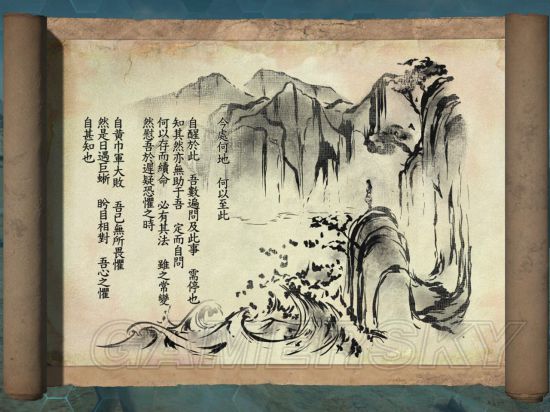 今處何地　何以至此
自醒於此　吾數遍問及此事　需停也
知其然亦無助于吾　定而自問
何以存而續命　必有其法　雖之常變
然慰吾於遲疑恐懼之時
自黃巾軍大敗　吾已無所畏懼
然是日遇巨蜥　盻目相對　吾心之懼
自甚知也
GAMERSKY